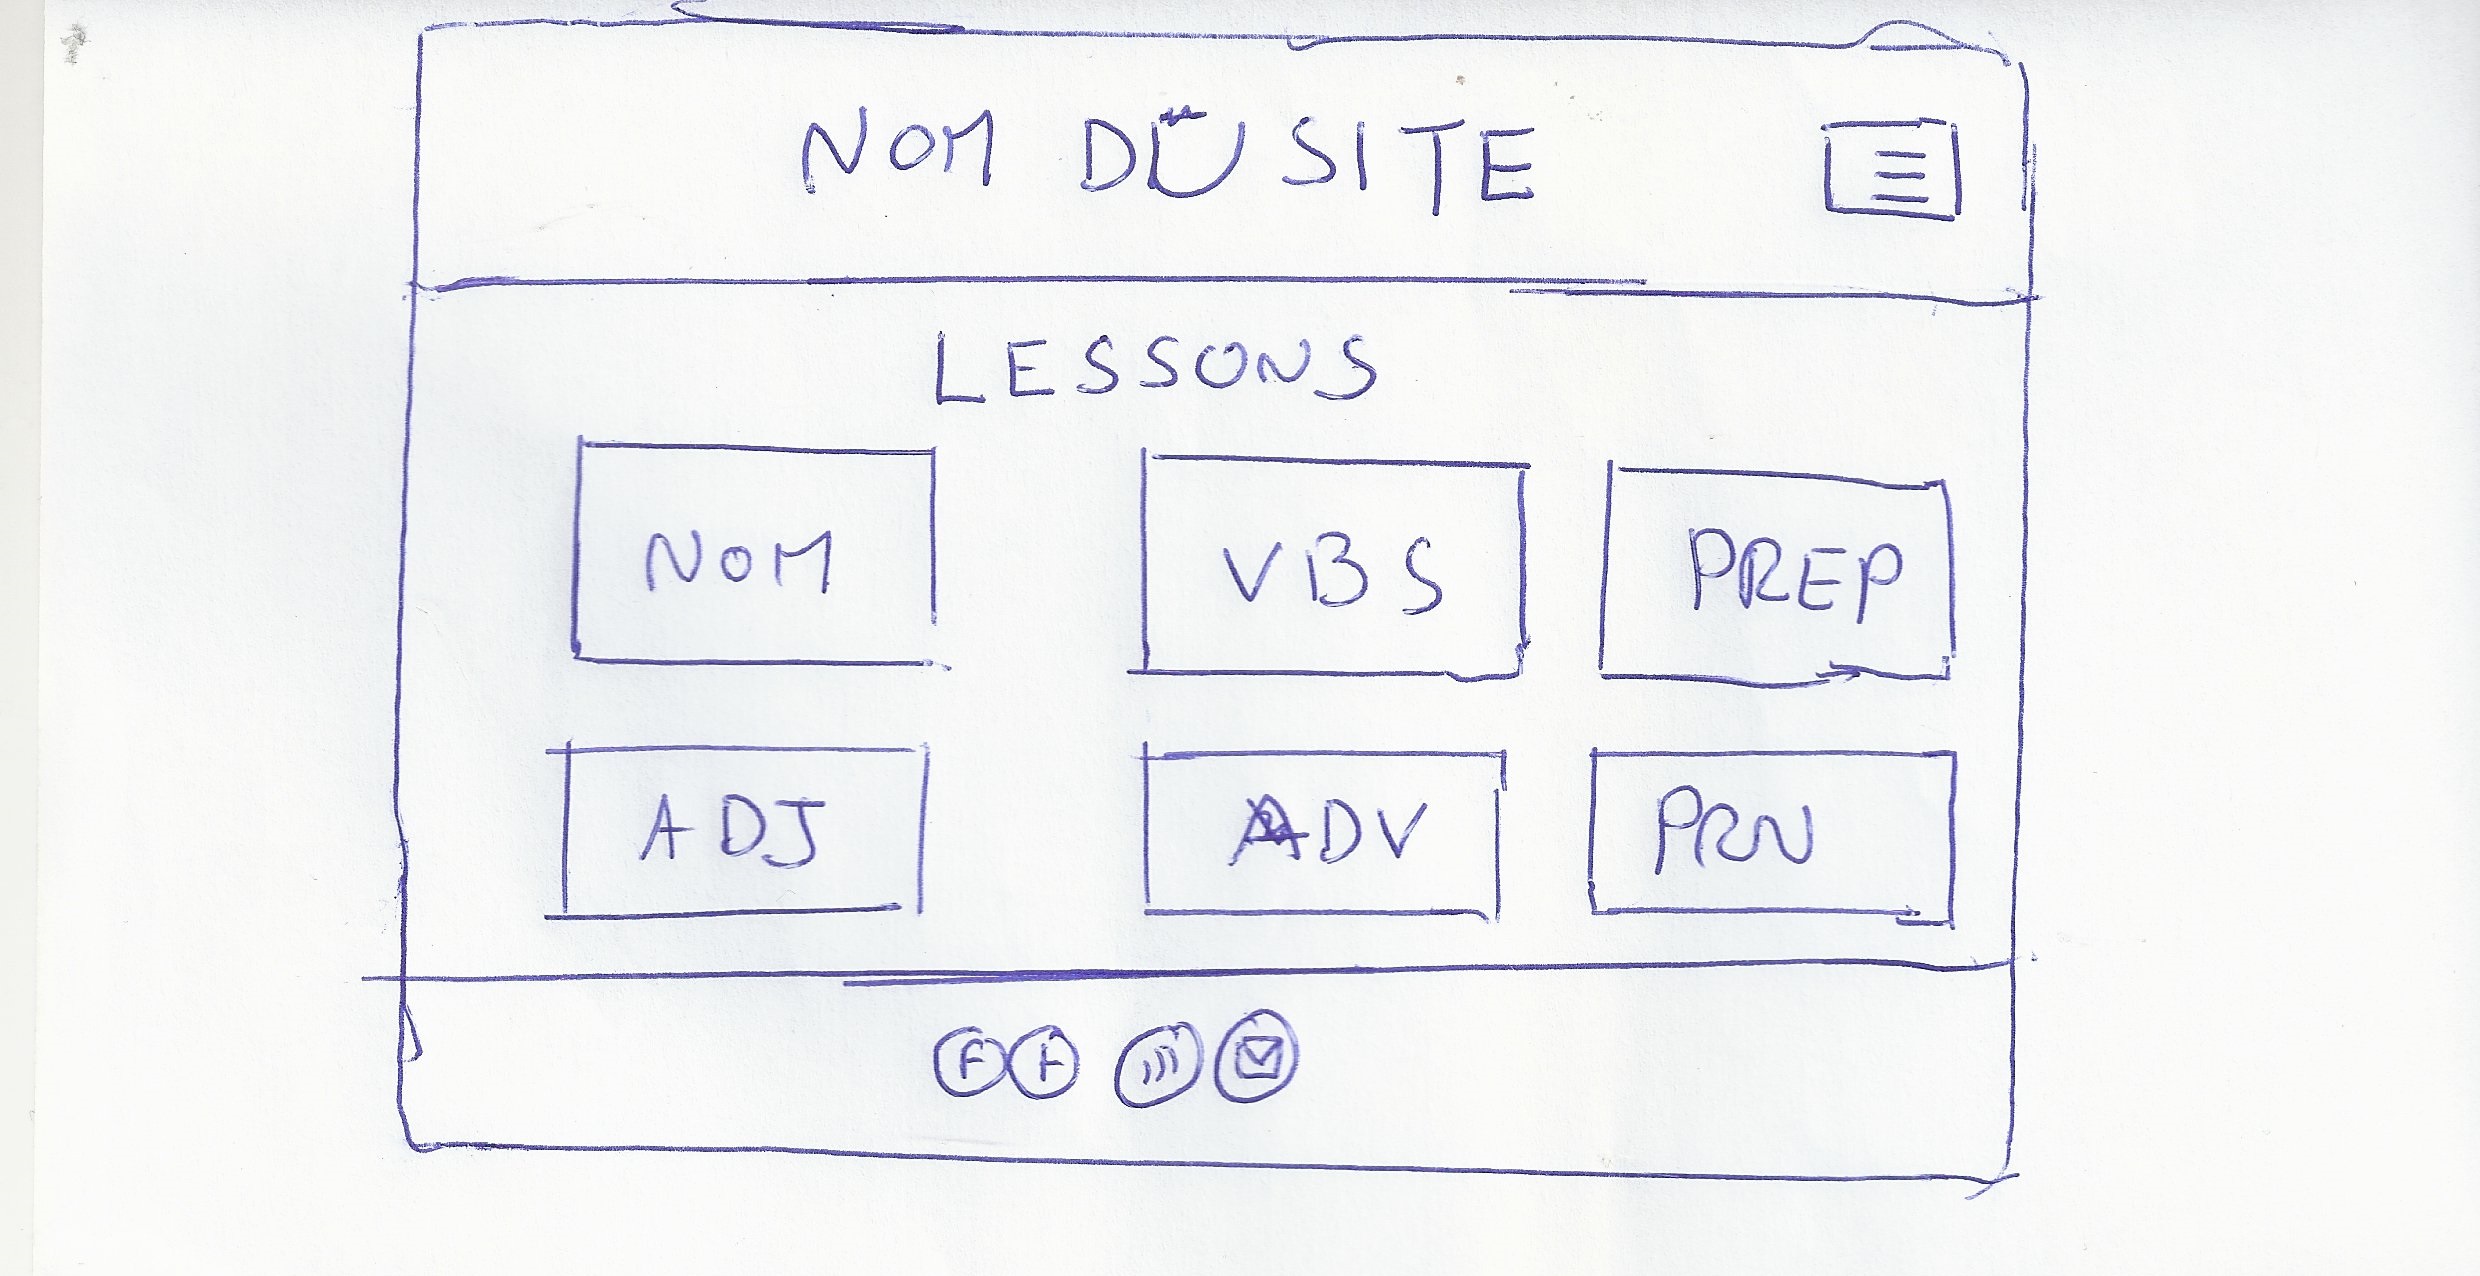 NOM DU SITE
LESSONS
NOM VBS PREP
ADJ ADV PRN
F